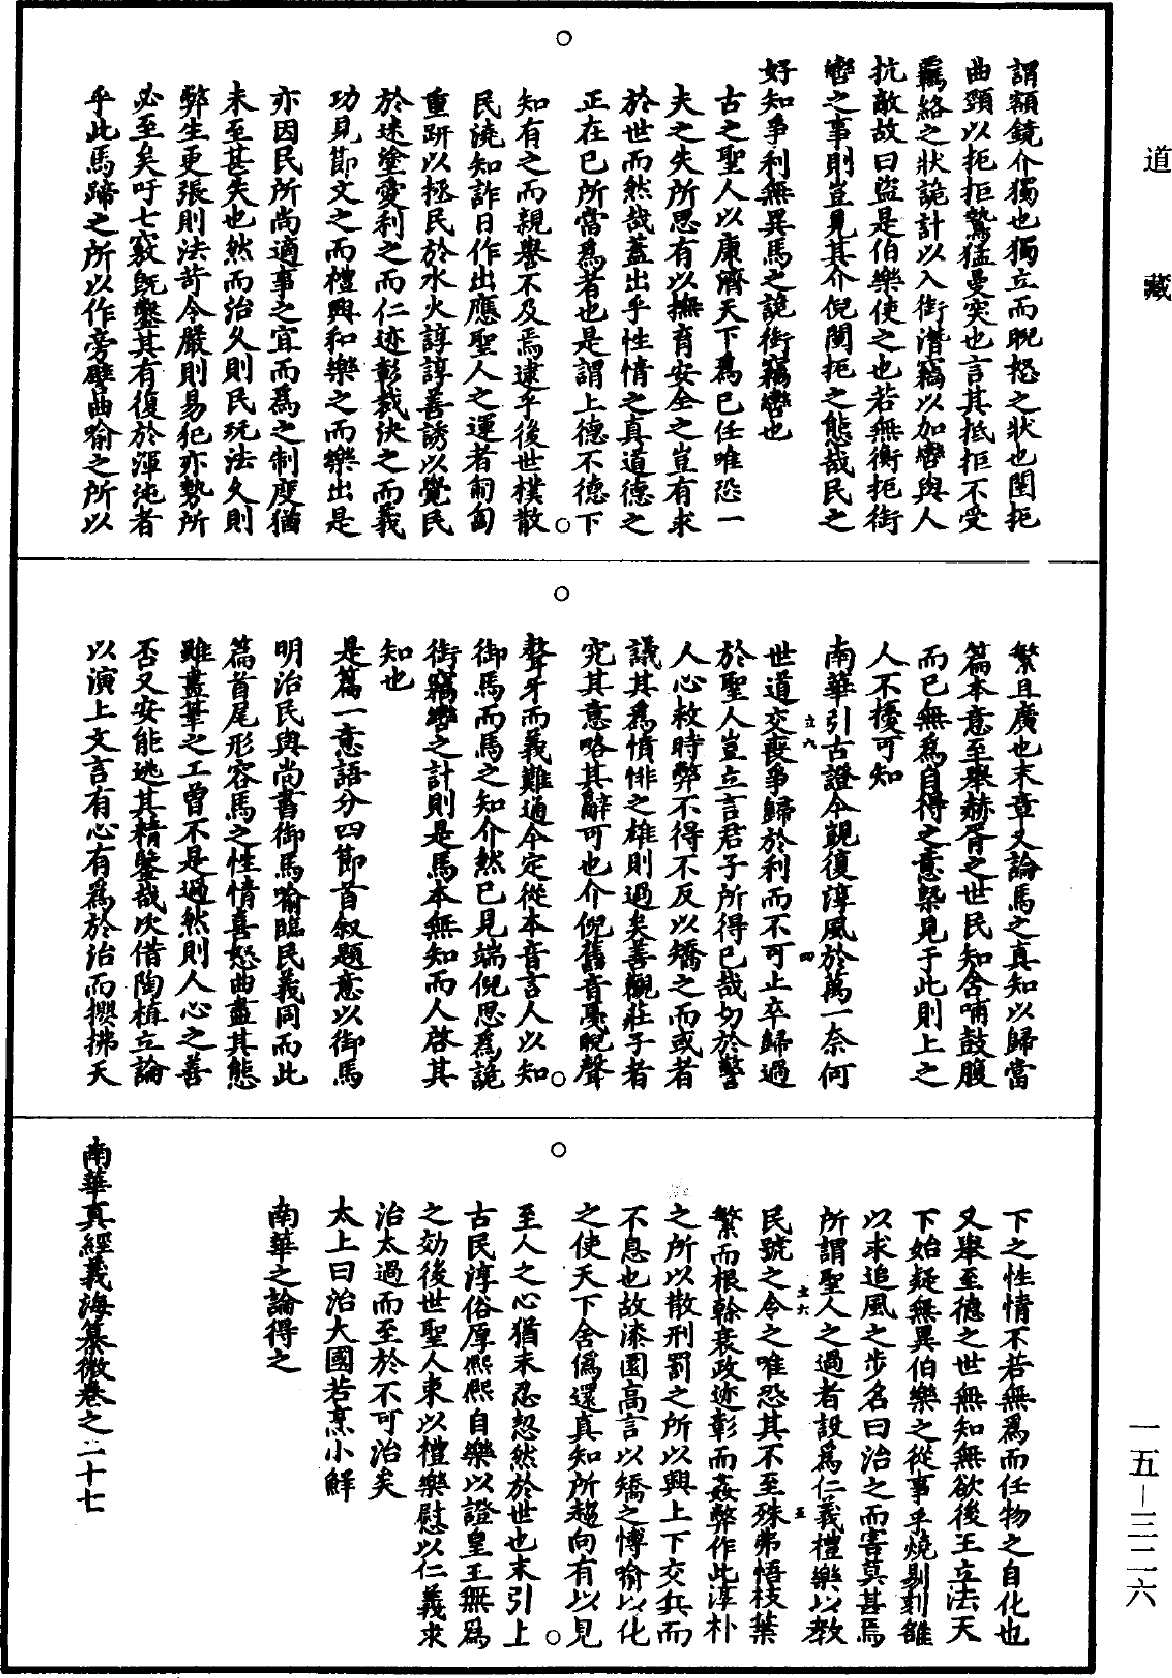 道藏
謂額鏡介獨也獨立而睨怒之狀也闉扼
曲頸以扼拒鷙猛曼突也言其抵拒不受
羈絡之狀詭計以入銜潛竊以加轡與人
抗敵故曰盜是伯樂使之也若無衡扼銜
轡之事則豈見其介倪闉扼之態哉民之
好知爭利無異馬之詭銜竊轡也
古之聖人以康濟天下爲已任唯恐一
夫之失所思有以撫育安全之豈有求
於世而然哉蓋出乎性情之真道德之
正在已所當爲者也是謂上德不德下
知有之而親譽不及焉逮乎後世樸散
民澆知詐日作出應聖人之運者匍匐
重趼以拯民於水火諄諄善誘以覺民
於迷塗愛利之而仁迹彰裁決之而義
功見節文之而禮興和樂之而樂出是
亦因民所尚適事之宜而爲之制度猶
未至甚失也然而治久則民玩法久則
弊生更張則法苛令嚴則易犯亦勢所
必至矣吁七竅既鑿其有復於渾沌者
乎此馬蹄之所以作旁譬曲喻之所以
繁且廣也末章又論馬之真知以歸當
篇本意至舉赫胥之世民知含哺鼓腹
而已無爲自得之意槩見于此則上之
人不擾可知
南華引古證今覬復淳風於萬一奈何
世道交喪爭歸於利而不可止卒歸過
於聖人豈立言君子所得已哉切於警
人心救時弊不得不反以矯之而或者
議其爲憤悱之雄則過矣善觀莊子者
究其意略其辭可也介倪舊音戞睨聲
聱牙而義難通今定從本音言人以知
御馬而馬之知介然已見端倪思爲詭
銜竊轡之計則是馬本無知而人啓其
知也
是篇一意語分四節首叙題意以御馬
明治民與尚書御馬喻臨民義同而此
篇首尾形容馬之性情喜怒曲盡其態
雖畫筆之工曾不是過然則人心之善
否又安能逃其精鑒哉次借陶植立論
以演上文言有心有爲於治而攖拂天
下之性情不若無爲而任物之自化也
又舉至德之世無知無欲後王立法天
下始疑無異伯樂之從事乎燒剔刻雒
以求追風之步名曰治之而害莫甚焉
所謂聖人之過者設爲仁義禮樂以教
民號之令之唯恐其不至殊弗悟枝葉
繁而根幹衰政迹彰而姦弊作此淳朴
之所以散刑罰之所以興上下交兵而
不息也故漆園高言以矯之愽喻以化
之使天下舍僞還真知所趨向有以見
至人之心猶未忍恝然於世也末引上
古民淳俗厚熙熙自樂以證皇王無爲
之効後世聖人束以禮樂慰以仁義求
治太過而至於不可治矣
太上曰治大國若烹小鮮
南華之論得之
南華真經義海纂微卷之二十七
一五—三二六